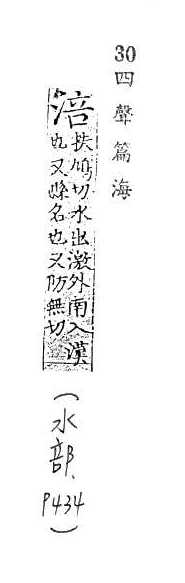 30四聲篇海
涪扶鳩切水出激外南入漢
也又縣名也又防無切
(水部、P434)